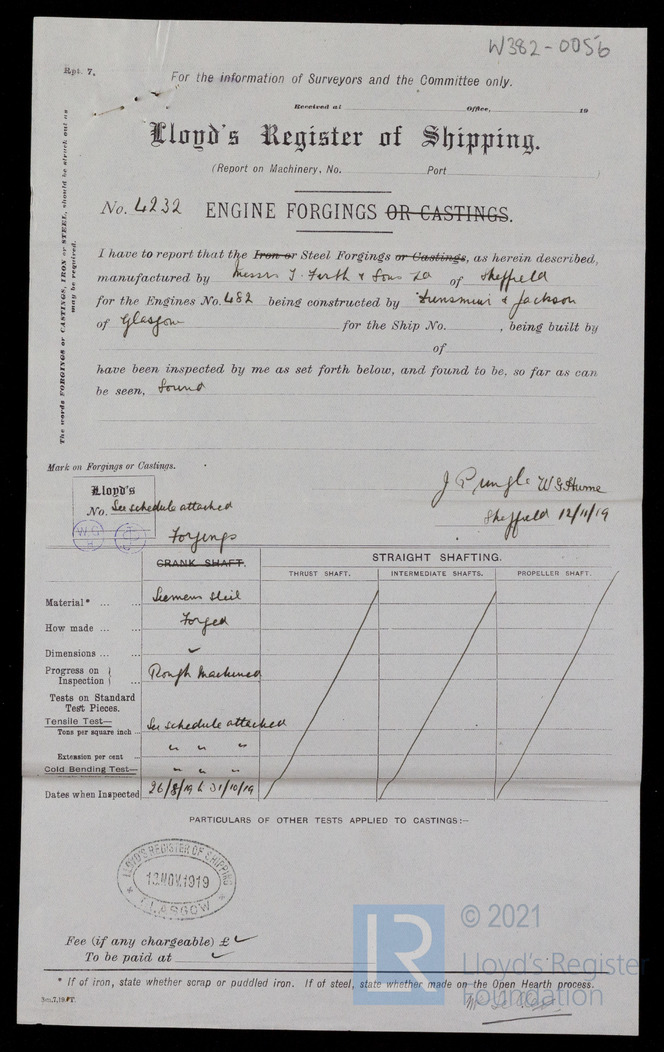 W382-0056
Rpt. 7.
For the information of Surveyors and the Committee only.
Received at Office, 19
Lloyd's Register of Shipping.
(Report on Machinery, No. Port )
No. 4232 ENGINE FORGINGS OR CASTINGS.
The words FORGINGS or CASTINGS, IRON or STEEL, should be struck out as may be required.
I have to report that the Iron or Steel Forgings or Castings, as herein described,
manufactured by Messrs T. Firth & Sons Ld of Sheffield
for the Engines No. 482 being constructed by Dunsmuir & Jackson
of Glasgow for the Ship No. , being built by
of
have been inspected by me as set forth below, and found to be, so far as can
be seen, Sound
Mark on Forgings or Castings.
Lloyd's
No. See schedule attached
W.G.H.
J Pringle W G Hume
Sheffield 12/11/19
Forgings
CRANK SHAFT.
STRAIGHT SHAFTING.
THRUST SHAFT. INTERMEDIATE SHAFTS. PROPELLER SHAFT.
Material* ... ... Siemens Steel
How made ... ... Forged
Dimensions ... ...
Progress on Inspection ... Rough Machined
Tests on Standard
Test Pieces.
Tensile Test— See schedule attached
Tons per square inch ... " " "
Extension per cent ...
Cold Bending Test— " " "
Dates when Inspected 26/8/19 to 31/10/19
PARTICULARS OF OTHER TESTS APPLIED TO CASTINGS:—
LLOYD'S REGISTER OF SHIPPING
13 NOV. 1919
GLASGOW
Fee (if any chargeable) £
To be paid at
* If of iron, state whether scrap or puddled iron. If of steel, state whether made on the Open Hearth process.
© 2021
Lloyd's Register
Foundation